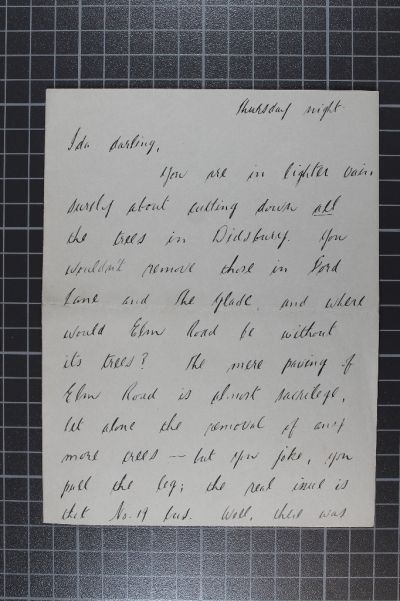 Thursday night.
Ida darling,
You are in lighter vain,
surely about cutting down all
the trees in Didsbury. You
wouldn't remove those in Ford
Lane and the Glade, and where
would Elm Road be without
its trees? The mere paving of
Elm Road is almost sacrilege,
let alone the removal of any
more trees — but you joke, you
pull the leg; the real issue is
that No. 19 bus. Well, there was